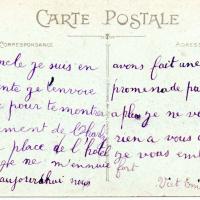 CARTE POSTALE
CORRESPONDANCE
ADRESSE
ncle je suis en
nte je t'envoie
e pour te montrer
ement de l'horlo
place de l'hôtel
gle ne m'ennuie
aujourd'hui nous
avons fait une
promenade pa
a plus je ne vo
rien a vous d
je vous emb
fort
Viet Emi